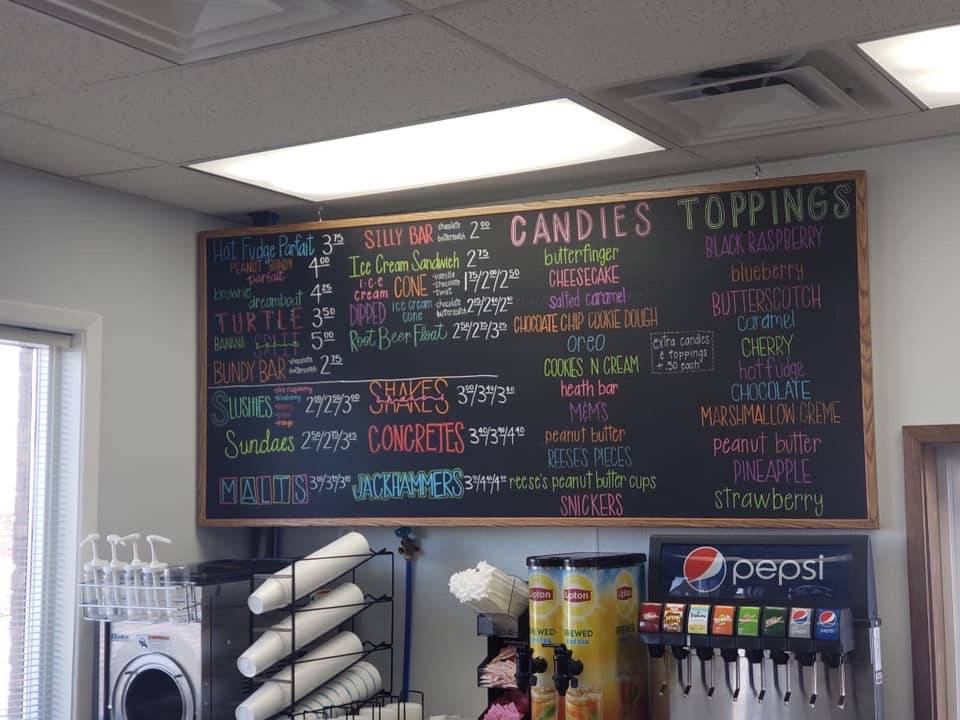 Hot Fudge Parfait 3.75
PEANUT BUNDY parfait 4.00
brownie dreamboat 4.25
TURTLE 3.50
BANANA SPLIT 5.00
BUNDY BAR chocolate butterscotch 2.75
SILLY BAR chocolate butterscotch 2.00
Ice Cream Sandwich 2.75
ice cream CONE -vanilla -chocolate -twist 1.75/2.00/2.50
DIPPED ice cream cone -chocolate -butterscotch
Root Beer Float
SLUSHIES blue raspberry
Sundaes
MALTS
SHAKES
CONCRETES
JACKHAMMERS
CANDIES
butterfinger
CHEESECAKE
salted caramel
CHOCOLATE CHIP COOKIE DOUGH
oreo
COOKIES N CREAM
heath bar
M&M'S
peanut butter
REESE'S PIECES
reese's peanut butter cups
SNICKERS
extra candies
& toppings
+.50 each
TOPPINGS
BLACK RASPBERRY
blueberry
BUTTERSCOTCH
caramel
CHERRY
hot fudge
CHOCOLATE
MARSHMALLOW CREME
peanut butter
PINEAPPLE
strawberry
pepsi
Lipton
Lipton
Lipton
BREWED
BREWED
pepsi
pepsi